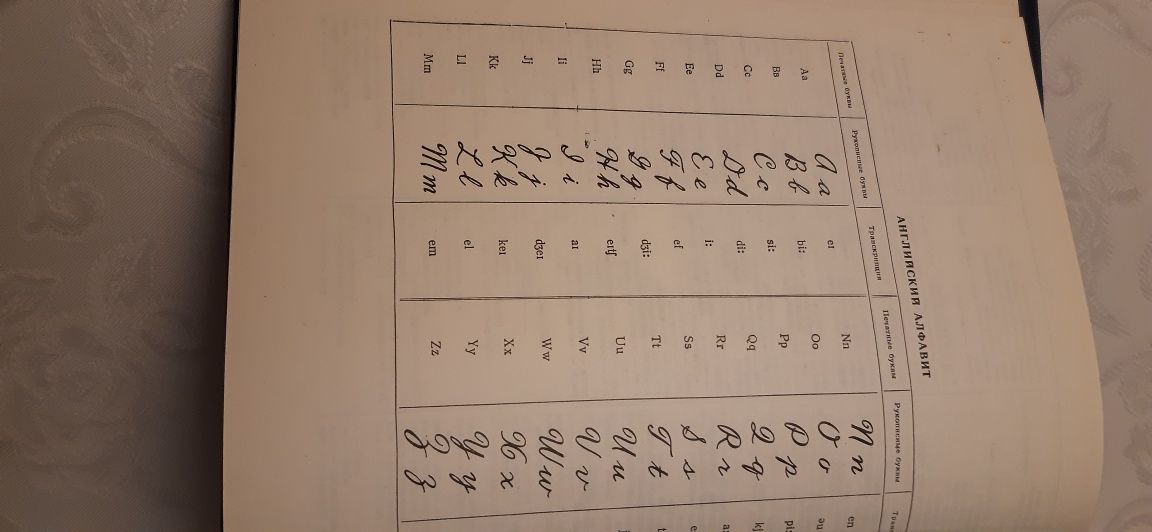 АНГЛИЙСКИЙ АЛФАВИТ
Печатные буквы Рукописные буквы Транскрипция Печатные буквы Рукописные буквы
Aa A a eɪ Nn N n en
Bb B b bi: Oo O o əu
Cc C c si: Pp P p pi:
Dd D d di: Qq Q q
Ee E e i: Rr R r
Ff F f ef Ss S s
Gg G g dʒi: Tt T t
Hh H h eɪtʃ Uu U u
Ii I i aɪ Vv V v
Jj J j dʒeɪ Ww W w
Kk K k keɪ Xx X x
Ll L l el Yy Y y
Mm M m em Zz Z z